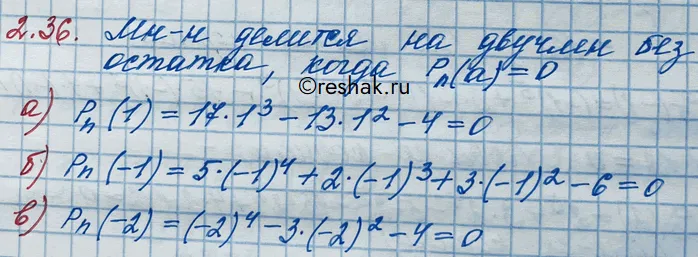 2.36. Мн-н делится на двучлен без
остатка, когда Pn(a)=0
©reshak.ru
а) Pn(1) = 17·1³ – 13·1² – 4 = 0
б) Pn(-1) = 5·(-1)⁴ + 2·(-1)³ + 3·(-1)² – 6 = 0
в) Pn(-2) = (-2)⁴ – 3·(-2)² – 4 = 0